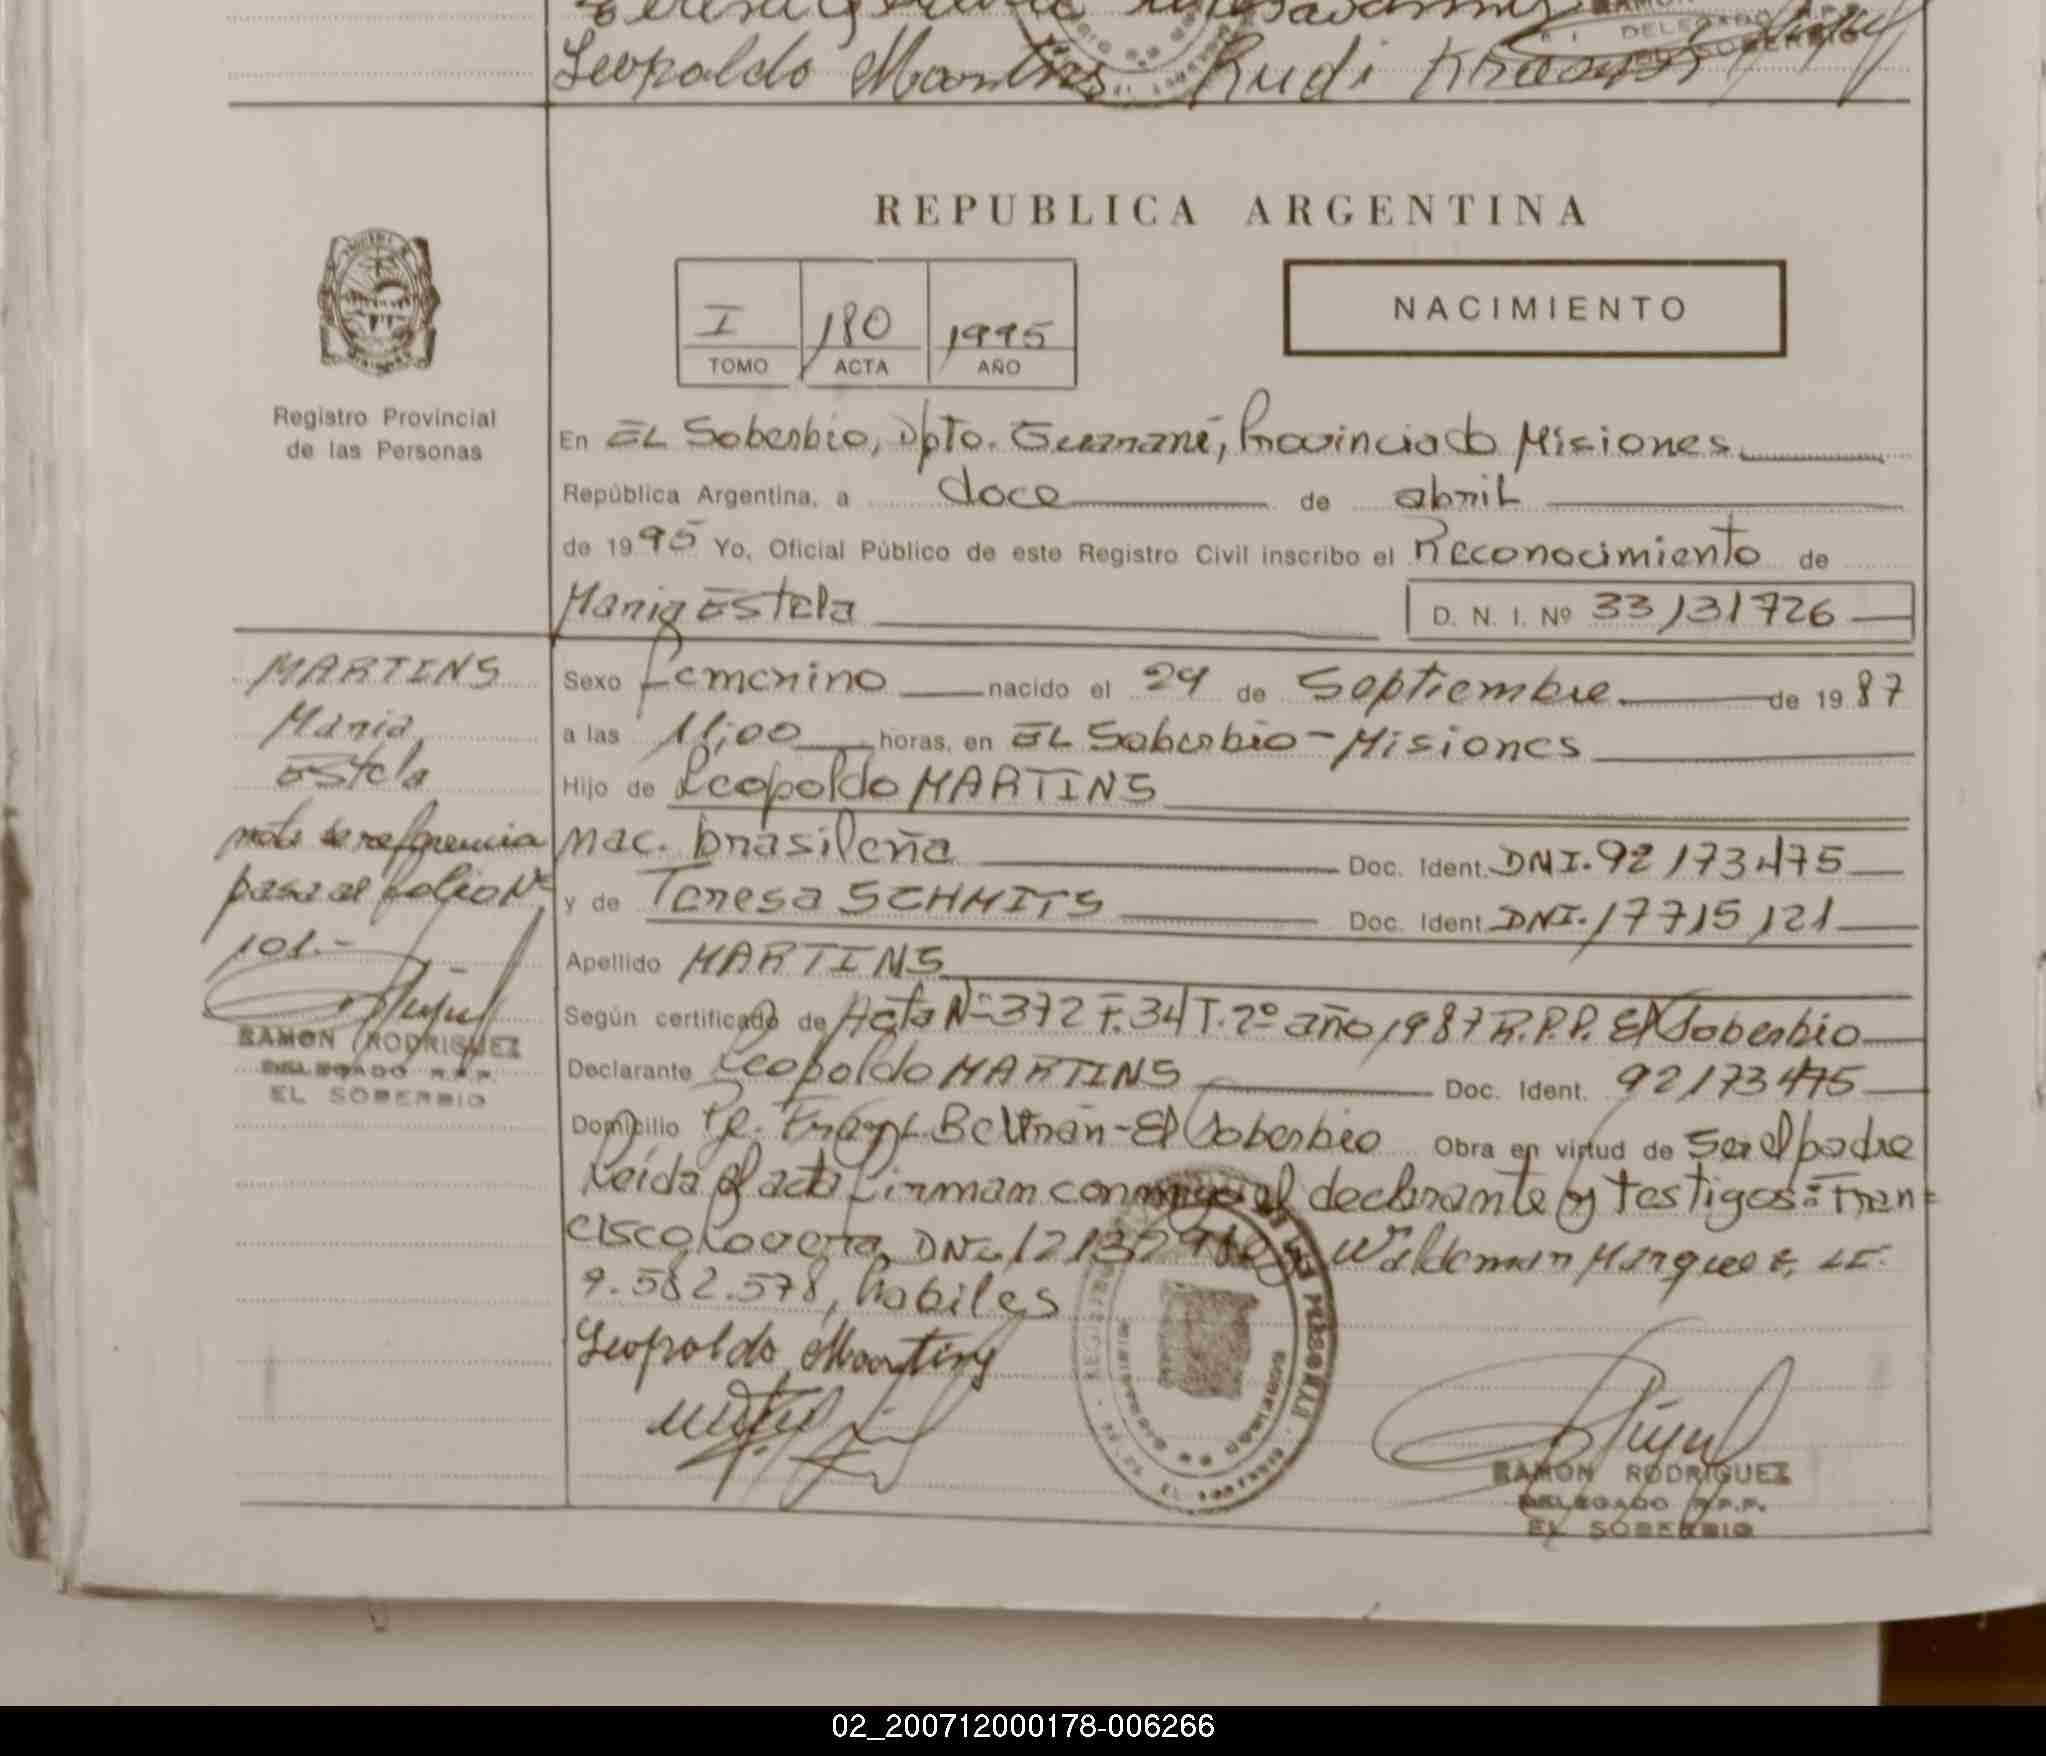 Leopoldo Martins Rudi
REPUBLICA ARGENTINA
I 180 1995
TOMO ACTA AÑO
NACIMIENTO
Registro Provincial
de las Personas
En EL Soberbio, Dpto. Guaraní, Provincia de Misiones
República Argentina, a doce de abril
de 1995 Yo, Oficial Público de este Registro Civil inscribo el Reconocimiento de
Maria Estela D. N. I. Nº 33131726
MARTINS
Maria
Estela
nota de referencia
pasa al folio Nº
101.-
RAMON RODRIGUEZ
DELEGADO R.P.P.
EL SOBERBIO
Sexo Femenino nacido el 29 de Septiembre de 1987
a las 11,00 horas, en EL Soberbio - Misiones
Hijo de Leopoldo MARTINS
nac. brasileña Doc. Ident. DNI. 92173475
y de Teresa SCHMITS Doc. Ident. DNI. 17715121
Apellido MARTINS
Según certificado de Acta Nº 372 F. 34 T. 2º año 1987 R.P.P. El Soberbio
Declarante Leopoldo MARTINS Doc. Ident. 92173475
Domicilio Beltrán - El Soberbio Obra en virtud de Ser el padre
Leída el acta firman conmigo el declarante y testigos: Fran=
cisco DNI Waldemar Marques, LE.
9.582.578, habiles
Leopoldo Martins
RAMON RODRIGUEZ
DELEGADO R.P.P.
EL SOBERBIO
02_200712000178-006266